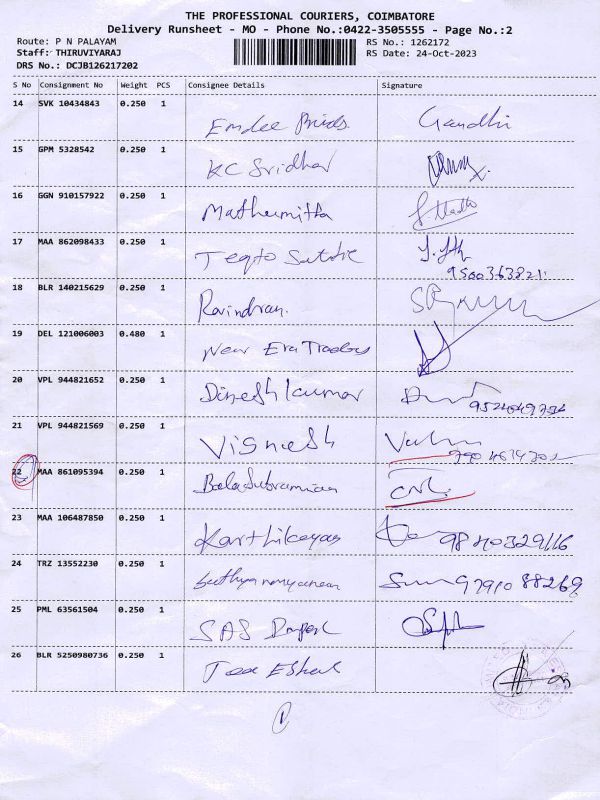 THE PROFESSIONAL COURIERS, COIMBATORE
Delivery Runsheet - MO - Phone No.:0422-3505555 - Page No.:2
Route: P N PALAYAM RS No.: 1262172
Staff: THIRUVIYARAJ RS Date: 24-Oct-2023
DRS No.: DCJB126217202
S No Consignment No Weight PCS Consignee Details Signature
14 SVK 10434843 0.250 1
Emdee Gandhi
15 GPM 5328542 0.250 1
KC Sridhar
16 GGN 910157922 0.250 1
Mathumitha
17 MAA 862098433 0.250 1
9500363821
18 BLR 140215629 0.250 1
Ravindran.
19 DEL 121006003 0.480 1
New Era Traders
20 VPL 944821652 0.250 1
Dinesh kumar
21 VPL 944821569 0.250 1
Vignesh
22 MAA 861095394 0.250 1
Balasubramian CNL
23 MAA 106487850 0.250 1
Karthikeyan
24 TRZ 13552230 0.250 1
97910 88269
25 PML 63561504 0.250 1
SAS
26 BLR 5250980736 0.250 1